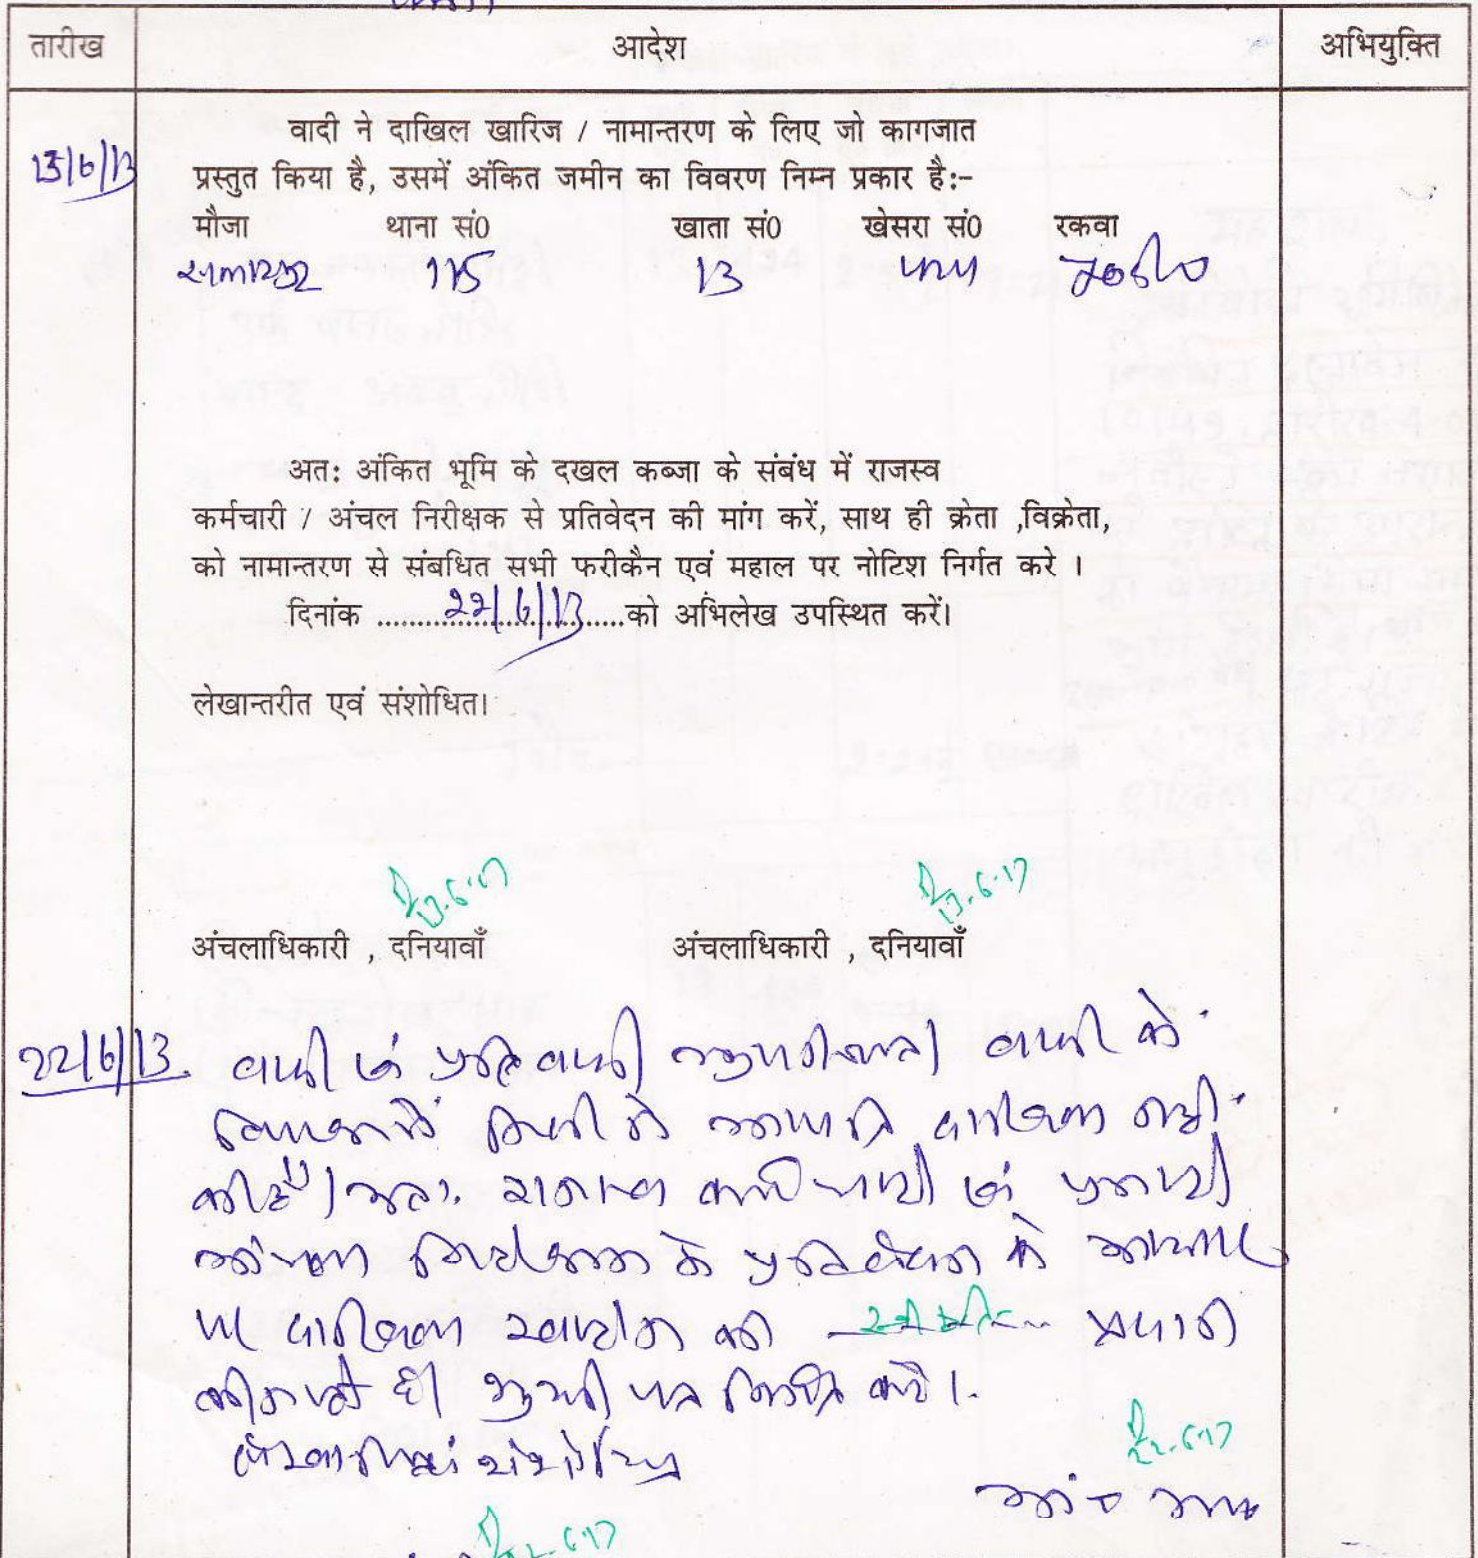 तारीख आदेश अभियुक्ति
13/6/13
वादी ने दाखिल खारिज / नामान्तरण के लिए जो कागजात
प्रस्तुत किया है, उसमें अंकित जमीन का विवरण निम्न प्रकार है:-
मौजा थाना सं0 खाता सं0 खेसरा सं0 रकवा
115 13
अत: अंकित भूमि के दखल कब्जा के संबंध में राजस्व
कर्मचारी / अंचल निरीक्षक से प्रतिवेदन की मांग करें, साथ ही क्रेता ,विक्रेता,
को नामान्तरण से संबधित सभी फरीकैन एवं महाल पर नोटिश निर्गत करे ।
दिनांक ..........22/6/13..........को अभिलेख उपस्थित करें।
लेखान्तरीत एवं संशोधित।
13.6.13 13.6.13
अंचलाधिकारी , दनियावाँ अंचलाधिकारी , दनियावाँ
22/6/13. वादी एवं प्रतिवादी वादी के
किसी ने आपत्ति दाखिल नहीं
की है। अतः राजस्व कर्मचारी एवं प्रभारी
अंचल निरीक्षक के प्रतिवेदन के आधार
पर दाखिल खारीज की स्वीकृति प्रदान
की जाती है। शुद्धी पत्र निर्गत करें।
लेखान्तरित एवं संशोधित
22.6.13
22.6.13